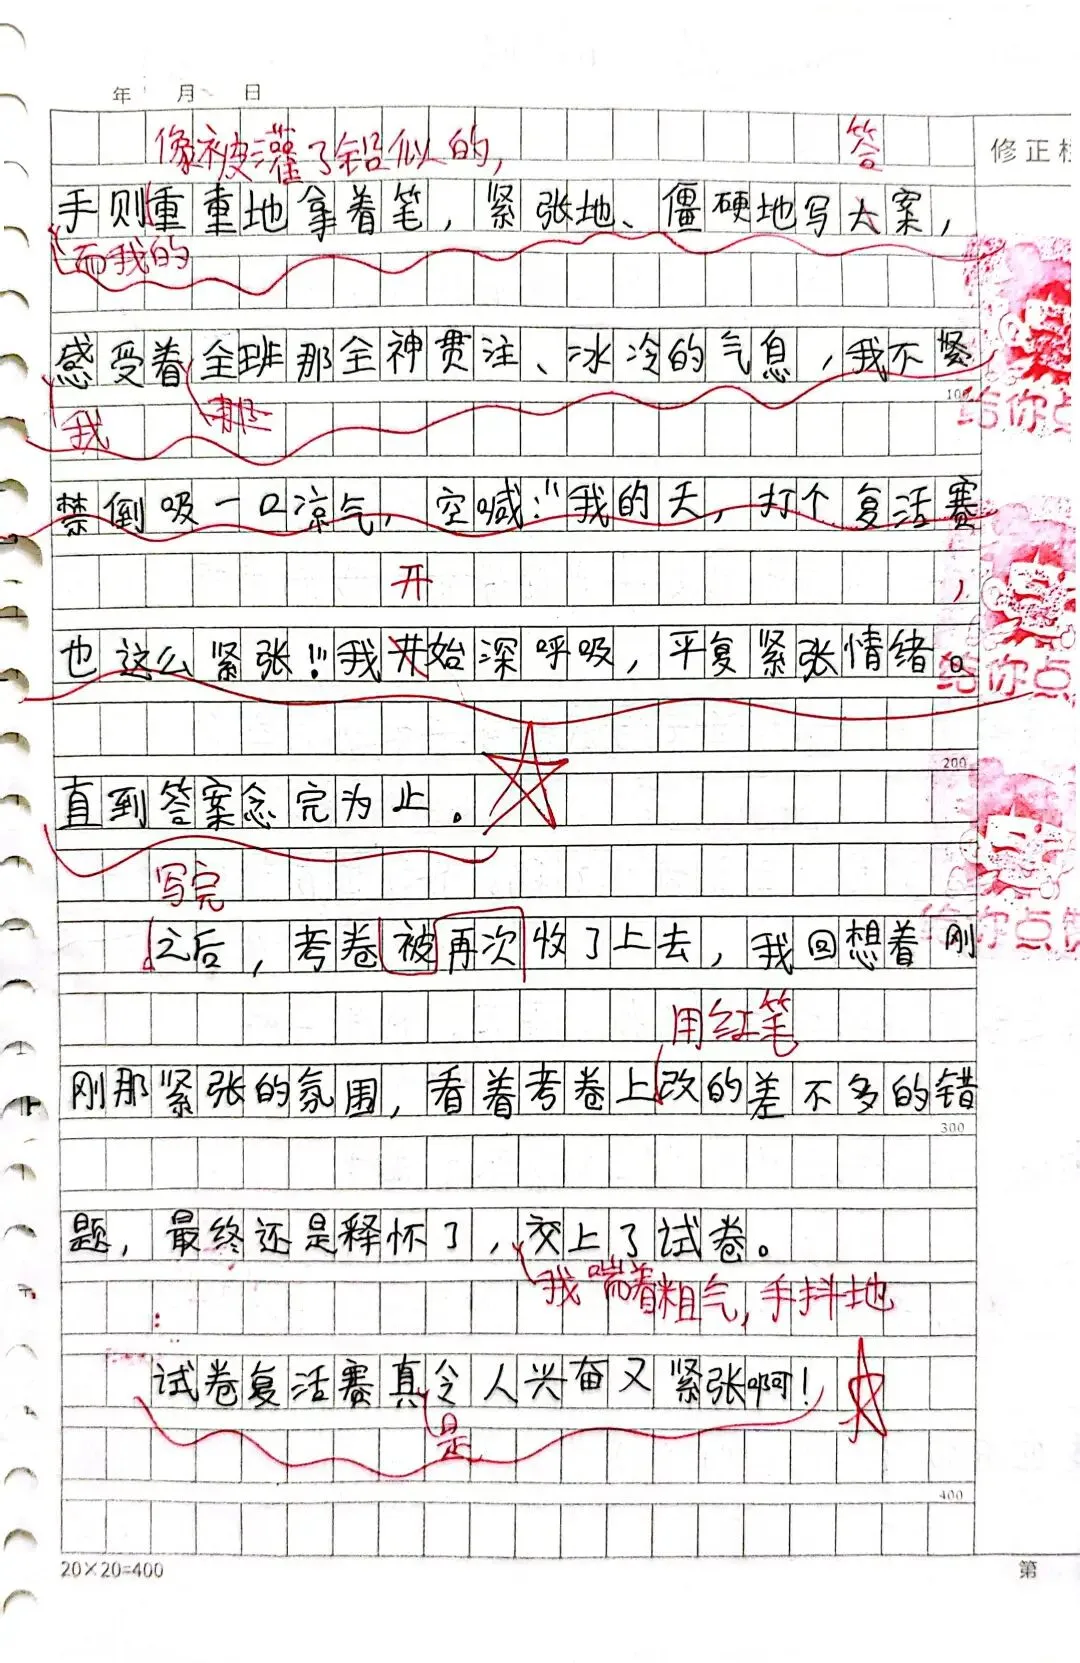 年 月 日
像被灌了铅似的,
答
修正
手则重重地拿着笔，紧张地、僵硬地写大案，
而我的
感受着全班那全神贯注、冰冷的气息，我不紧
100
我
给你点
禁倒吸一口凉气，空喊："我的天，打个复活赛
开
，
也这么紧张!"我开始深呼吸，平复紧张情绪。
给你点
200
直到答案念完为止。
写完
之后，考卷被再次收了上去，我回想着刚
给你点
用红笔
刚那紧张的氛围，看着考卷上改的差不多的错
300
题，最终还是释怀了，交上了试卷。
我喘着粗气,手抖地
试卷复活赛真令人兴奋又紧张啊！
是
400
20×20=400
第